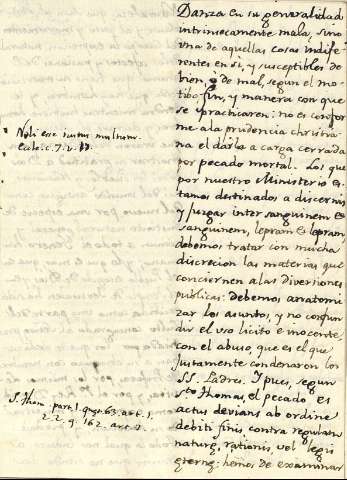 Danza en su generalidad
intrinsecamente mala, sino
una de aquellas cosas indife-
rentes en si, y susceptibles de
bien, ò de mal, segun el mo-
tibo, fin, y manera con que
se practicaren: no es confor-
me a la prudencia christia-
na el darla a carga cerrada
por pecado mortal. Los que
por nuestro Ministerio es-
tamos destinados a discernir,
y juzgar inter sanguinem &
sanguinem, lepram & lepram
debemos tratar con mucha
discrecion las materias que
conciernen a las diversiones
publicas: debemos anatomi-
zar los asuntos, y no confun-
dir el uso licito e inocente,
con el abuso, que es el que
justamente condenaron los
SS. Padres. I pues, segun
Sto Thomas, el pecado es
actus devians ab ordine
debiti finis contra regulam
naturę, rationis, vel legis
ęternę: hemos de examinar
Noli esse iustus multum.
Eccle. c. 7. v. 17.
S. Thom. part. 1. qęst. 63. art. 1.
2. 2. q. 162. art.